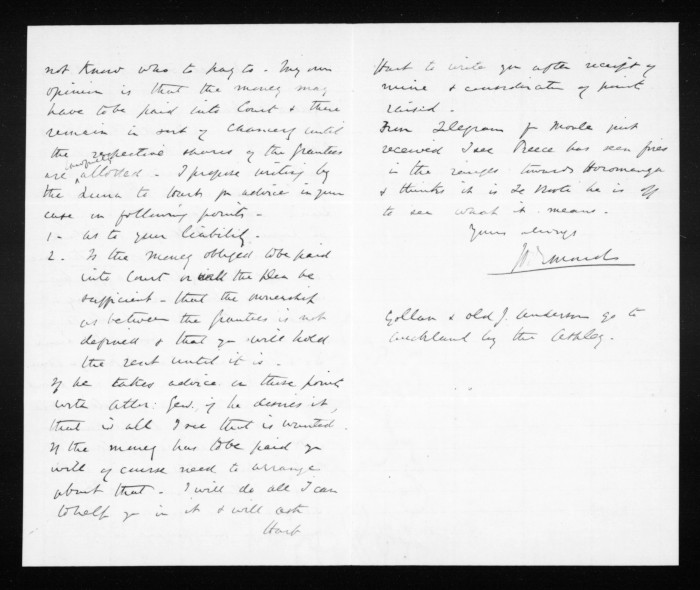 not know who to pay to - My own
opinion is that the money may
have to be paid into Court & there
remain in sort of Chancery until
the respective shares of the grantees
are allotted - I propose writing by
the Luna to Hart for advice in your
case in following points -
1 - as to your liability -
2 - Is the money obliged to be paid
into Court or will the plea be
sufficient - that the ownership
as between the grantees is not
defined & that you will hold
the rent until it is -
If he takes advice on these points
with Atter: Genl. if he desires it,
that is all I see that is wanted.
If the money has to be paid you
will of course need to arrange
about that - I will do all I can
to help you in it & will ask
Hart
Hart to write you after receipt of
mine & consideration of point
raised -
From Telegram fr Moule just
received I see Preece has seen fires
in the ranges towards Horomanga
& thinks it is Te Kooti he is off
to see what it means -
Yours always
Gollan & old J. Anderson go to
Auckland by the Ashley -